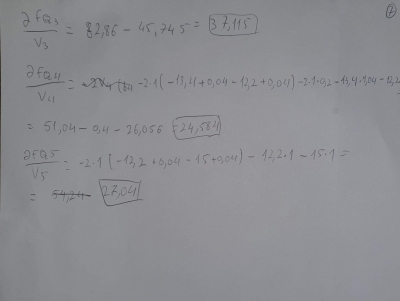 2
∂FQ3
V3 = 82,86 - 45,745 = 37,115
∂FQ4
V4 = -2·1(-13,4+0,04-12,2+0,04)-2·1·0,2-13,4·1,04-12,2
= 51,04 - 0,4 - 26,056 = 24,584
∂FQ5
V5 = -2·1(-12,2+0,04-15+0,04)-12,2·1-15·1=
= 54,24 27,04